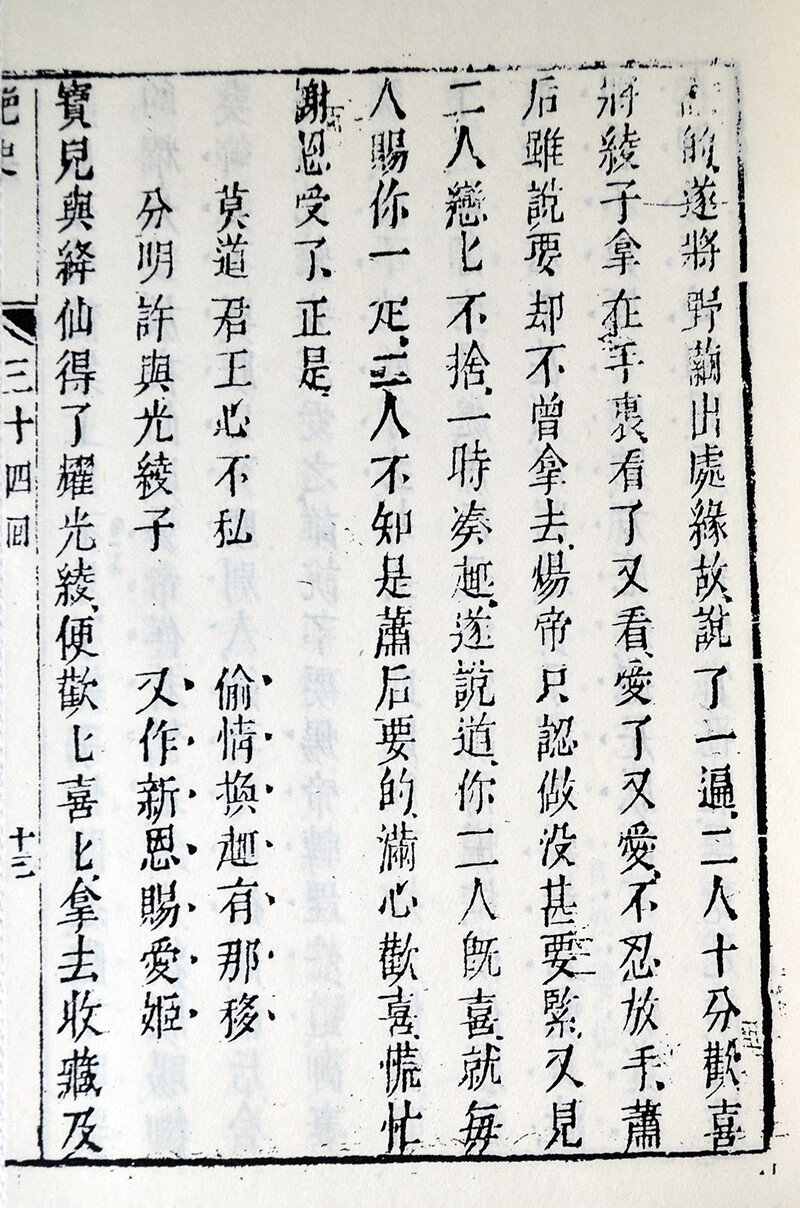 的遂將野繭出處緣故、說了一遍、二人十分歡喜
將綾子拿在手裏、看了又看、愛了又愛、不忍放手、蕭
后雖說要却不曾拿去、煬帝只認做没甚要緊、又見
二人戀匕不捨、一時凑趣、遂說道、你二人既喜、就每
人賜你一疋、二人不知是蕭后要的、滿心歡喜、慌忙
謝恩受了、正是、
莫道君王心不私　偷情換趣有那移
分明許與光綾子　又作新恩賜愛姬
寶兒與絳仙得了耀光綾、便歡匕喜匕、拿去收藏及
艷史　三十四回　十三